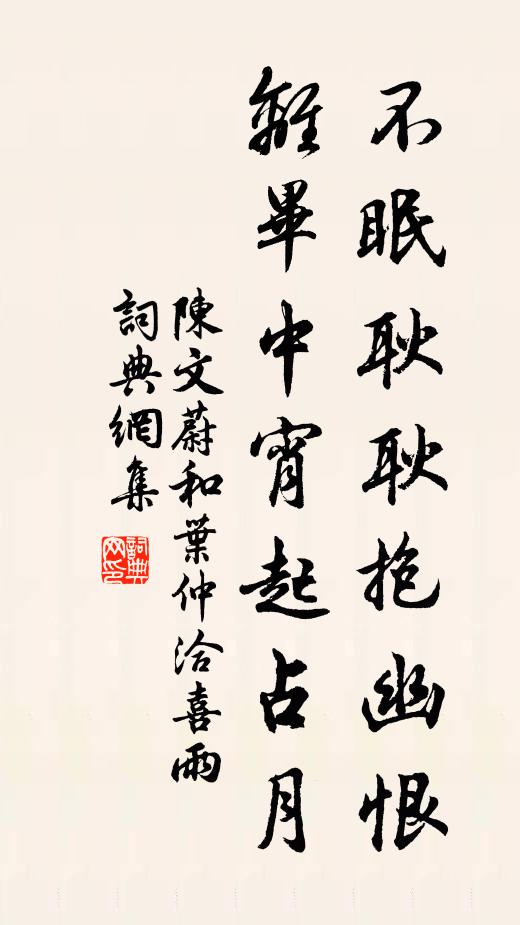 不眠耿耿抱幽恨
離畢中宵起占月
陳文蔚和葉仲洽喜雨
詞典網集
詞典网印